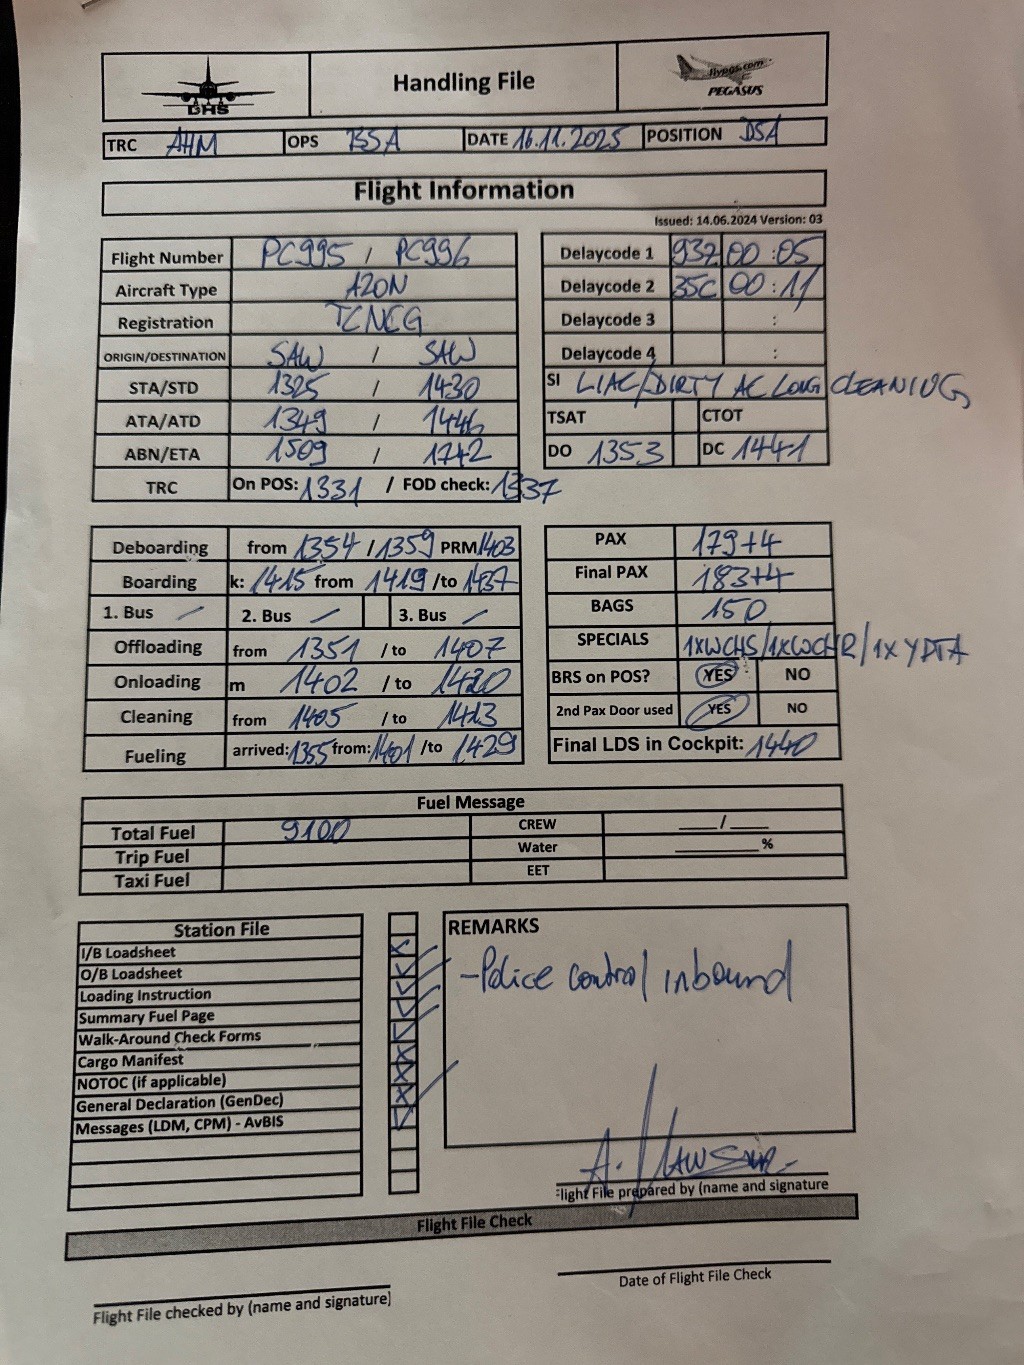 GHS
Handling File
flypgs.com
PEGASUS
TRC AHM OPS BSA DATE 16.11.2025 POSITION D5A
Flight Information
Issued: 14.06.2024 Version: 03
Flight Number PC995 / PC996
Aircraft Type A20N
Registration TCNCG
ORIGIN/DESTINATION SAW / SAW
STA/STD 1325 / 1430
ATA/ATD 1349 / 1446
ABN/ETA 1509 / 1742
TRC On POS: 1331 / FOD check: 1337
Delaycode 1 93Z 00 : 05
Delaycode 2 35C 00 : 11
Delaycode 3 :
Delaycode 4 :
SI LIAC/DIRTY AC LONG CLEANING
TSAT CTOT
DO 1353 DC 1441
Deboarding from 1354 / 1359 PRM 1403
Boarding k: 1415 from 1419 /to 1437
1. Bus 2. Bus 3. Bus
Offloading from 1351 / to 1407
Onloading m 1402 / to 1420
Cleaning from 1405 / to 1413
Fueling arrived: 1355 from: 1401 /to 1429
PAX 179+4
Final PAX 183+4
BAGS 150
SPECIALS 1xWCHS/1xWCHR/1x
BRS on POS? YES NO
2nd Pax Door used YES NO
Final LDS in Cockpit: 1440
Fuel Message
Total Fuel 9100 CREW ____/____
Trip Fuel Water ________%
Taxi Fuel EET
Station File
I/B Loadsheet
O/B Loadsheet
Loading Instruction
Summary Fuel Page
Walk-Around Check Forms
Cargo Manifest
NOTOC (if applicable)
General Declaration (GenDec)
Messages (LDM, CPM) - AvBIS
REMARKS
- Police control inbound
A.
Flight File prepared by (name and signature
Flight File Check
Flight File checked by (name and signature)
Date of Flight File Check